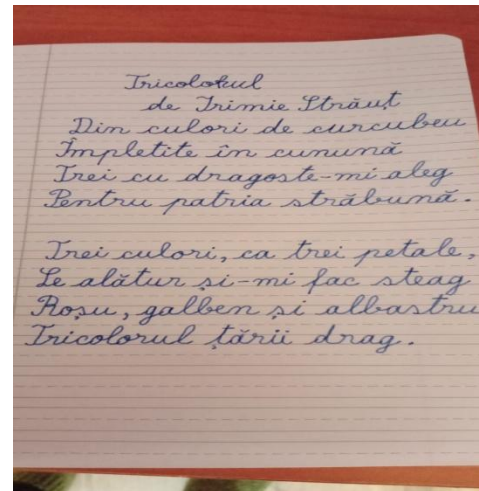 Tricolorul
de Irimie Străuț
Din culori de curcubeu
Împletite în cunună
Trei cu dragoste-mi aleg
Pentru patria străbună.
Trei culori, ca trei petale,
Le alătur și-mi fac steag
Roșu, galben și albastru
Tricolorul țării drag.